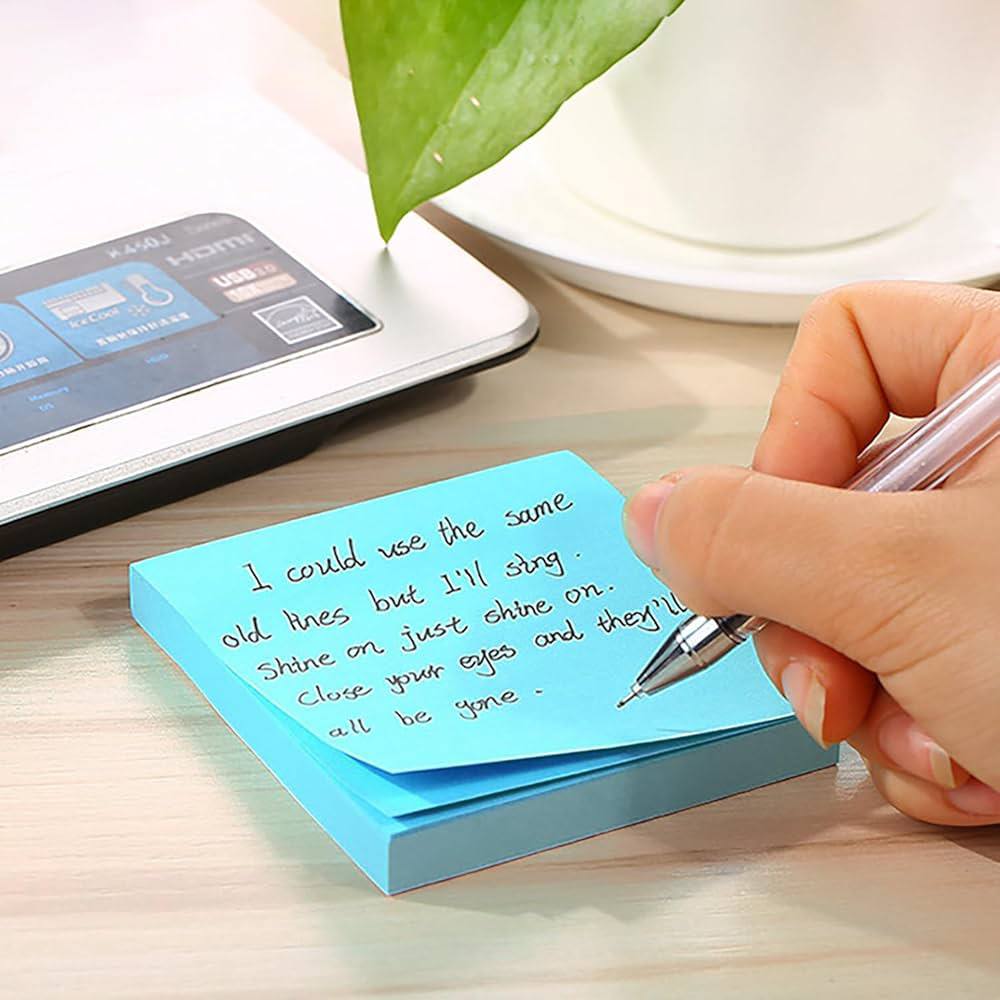 X450J
HDMI
USB 3.0
IceCool
Memory
HDD
OS
I could use the same
old lines but I'll sing.
Shine on just shine on.
Close your eyes and they'll
all be gone.